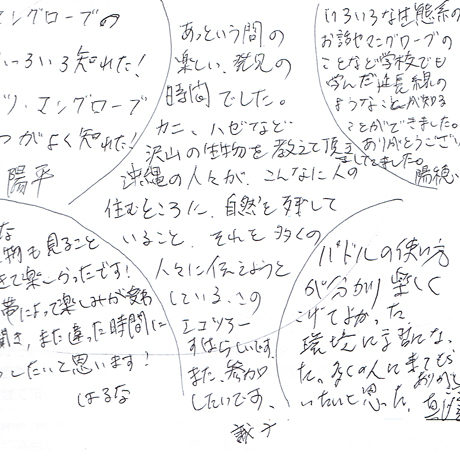 マングローブの
いろいろ知れた!
マングローブ
がよく知れた!
陽平
あっという間の
楽しい、発見の
時間でした。
カニ、ハゼなど
沢山の生物を教えて頂き
ました。
沖縄の人々が、こんなに人の
住むところに、自然を残して
いること、それを多くの
人々に伝えようと
している、この
エコツアー
すばらしいです。
また、参加
したいです。
いろいろな生態系の
お話やマングローブの
ことなど学校でも
学んだ延長線の
ようなことが知る
ことができました。
ありがとうござい
ました。
物も見ること
きて楽しかったです!
帯によって楽しみが変わ
聞き、また違った時間に
したいと思います!
はるな
パドルの使い方
が分かり楽しく
こげてよかった
環境に
た。多くの人に来てもら
いたいと思った。